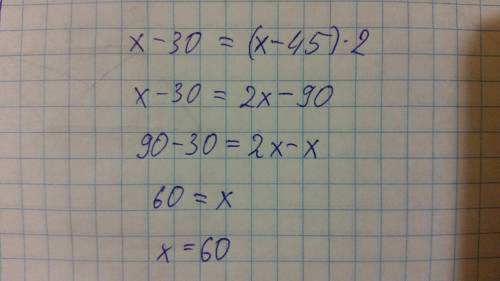 x-30 = (x-45)·2
x-30 = 2x-90
90-30 = 2x-x
60 = x
x = 60